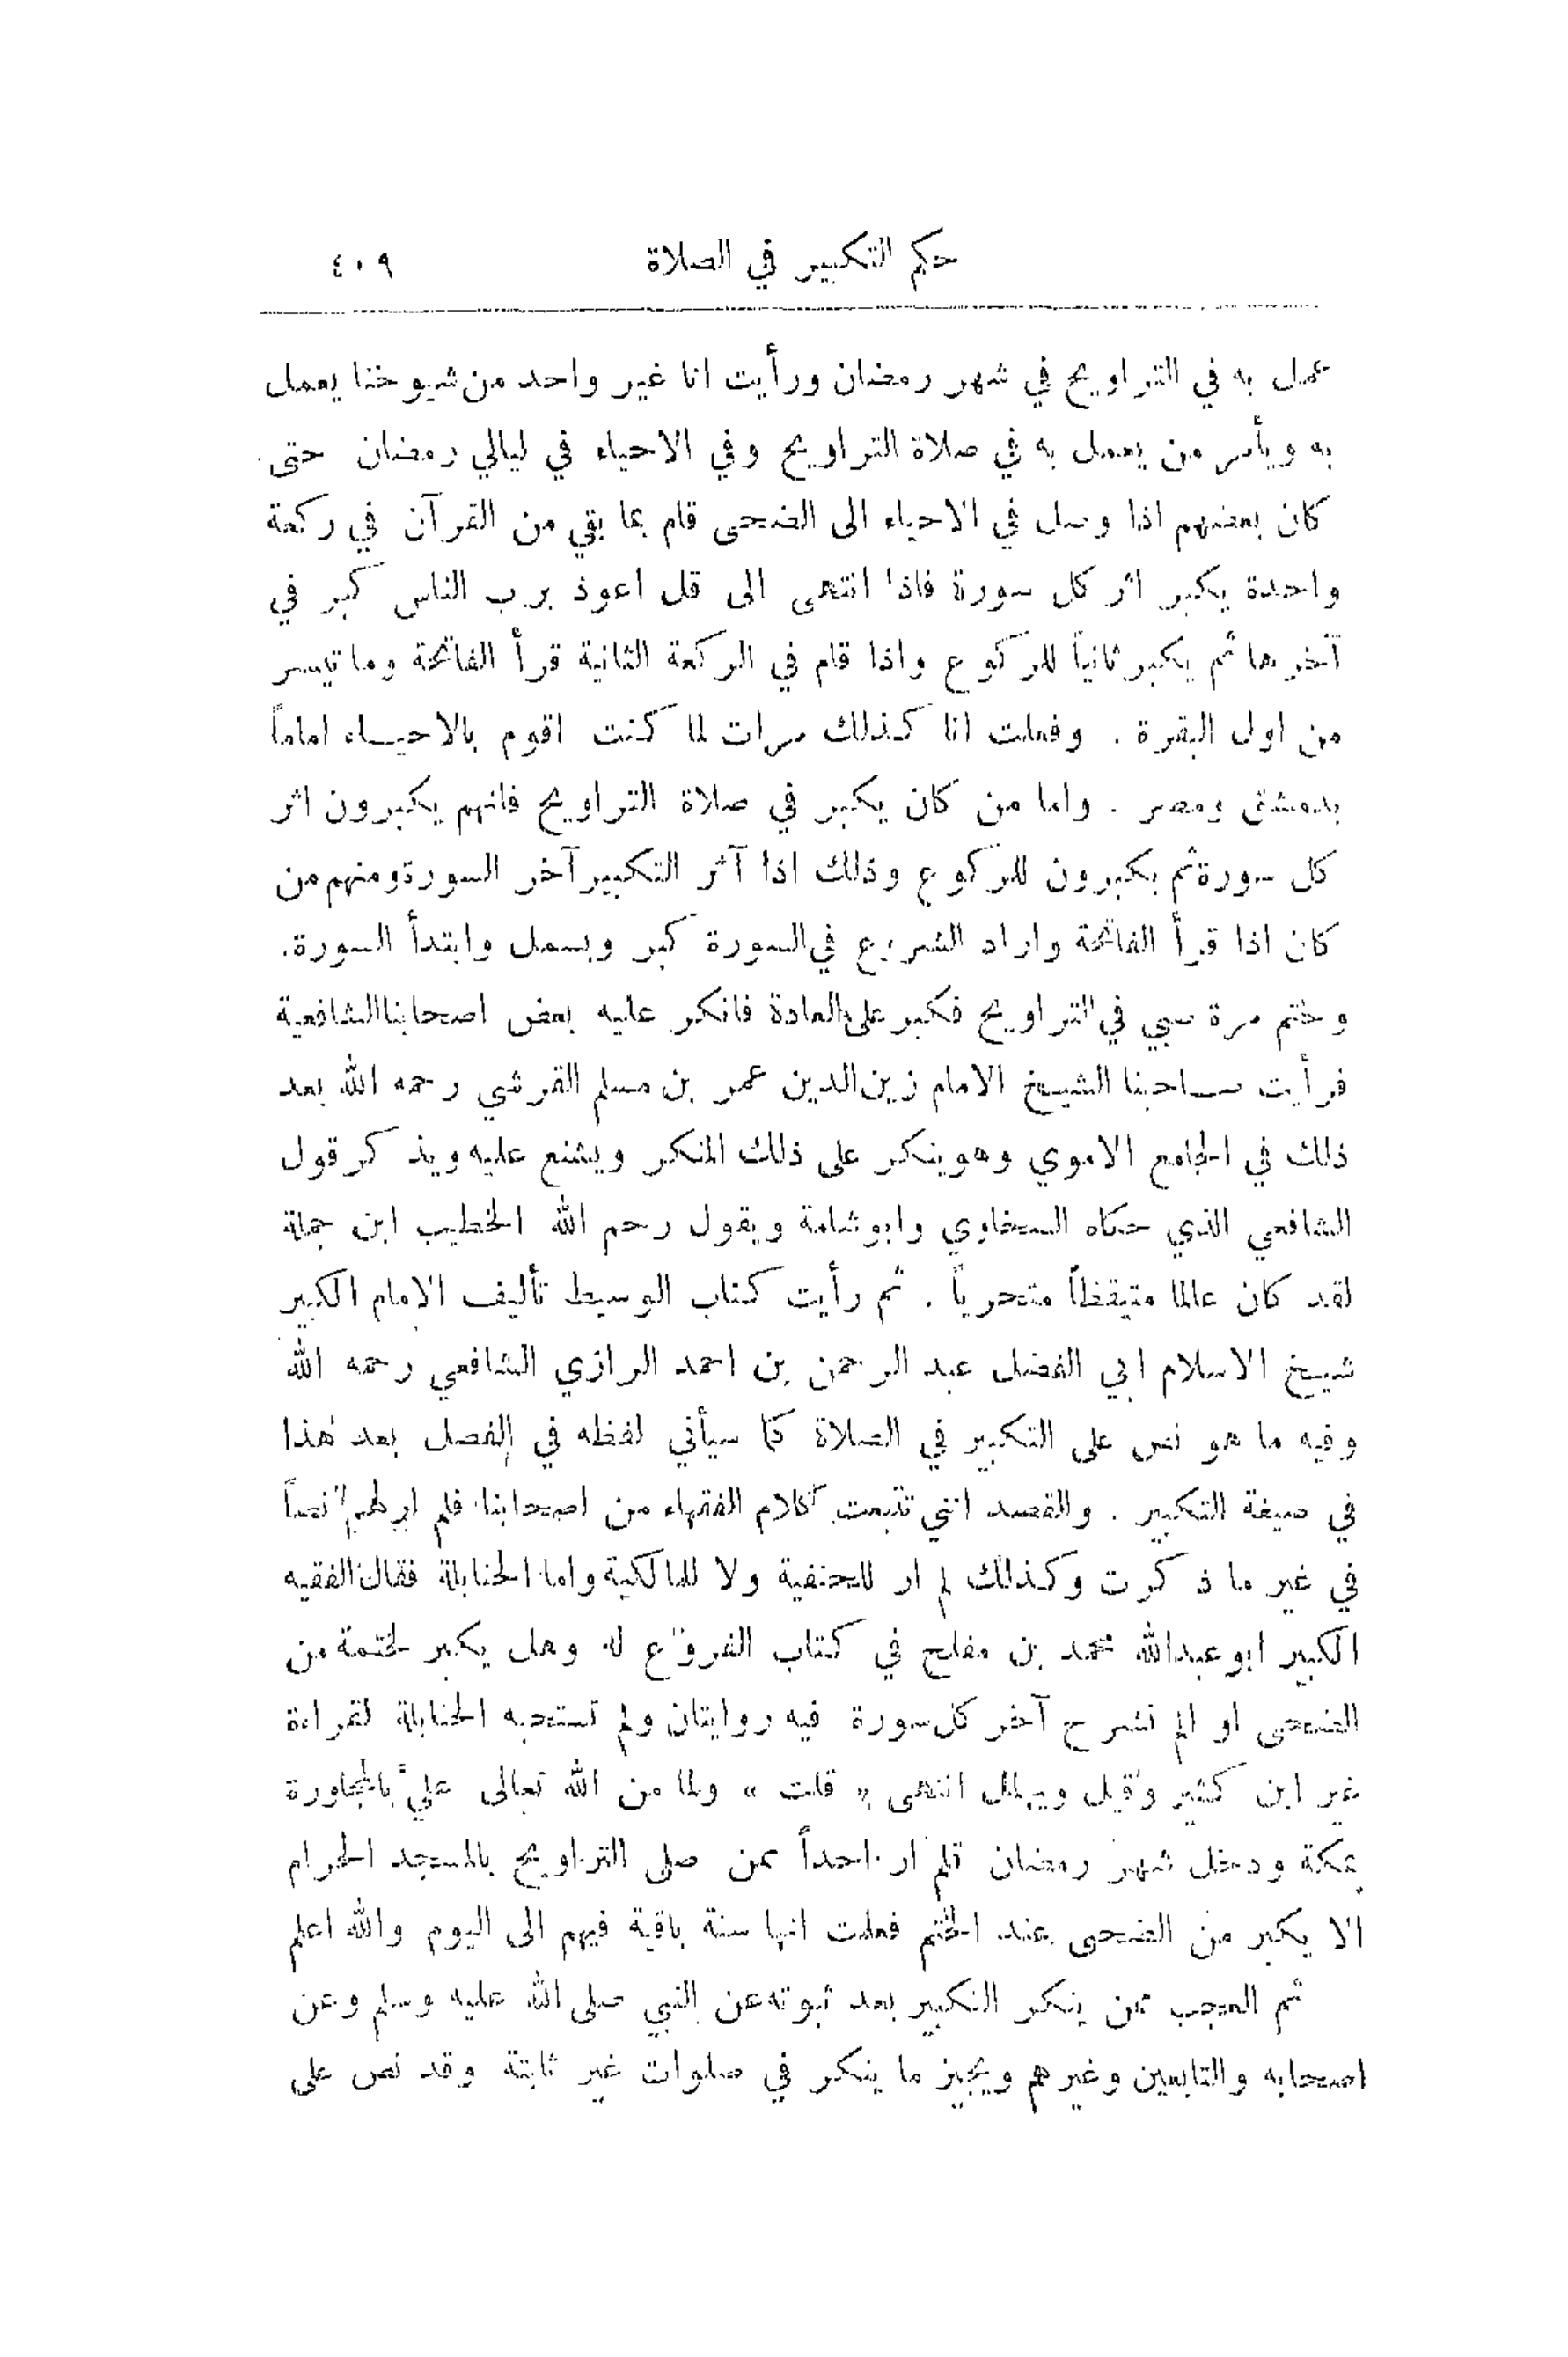 حكم التكبير في الصلاة ٤٠٩
عمل به في التراويح في شهر رمضان ورأيت انا غير واحد من شيوخنا يعمل
به ويأمر من يعمل به في صلاة التراويح وفي الاحياء في ليالي رمضان حتى
كان بعضهم اذا وصل في الاحياء الى الضحى قام بما بقي من القرآن في ركعة
واحدة يكبر اثر كل سورة فاذا انتهى الى قل اعوذ برب الناس كبر في
آخرها ثم يكبر ثانياً للركوع واذا قام في الركعة الثانية قرأ الفاتحة وما تيسر
من اول البقرة . وفعلت انا كذلك مرات لما كنت اقوم بالاحياء اماماً
بدمشق ومصر . واما من كان يكبر في صلاة التراويح فانهم يكبرون اثر
كل سورة ثم يكبرون للركوع وذلك اذا آثر التكبير آخر السورة ومنهم من
كان اذا قرأ الفاتحة واراد الشروع في السورة كبر وبسمل وابتدأ السورة.
وختم مرة صبي في التراويح فكبر على العادة فانكر عليه بعض اصحابنا الشافعية
فرأيت صاحبنا الشيخ الامام زين الدين عمر بن مسلم القرشي رحمه الله بعد
ذلك في الجامع الاموي وهو ينكر على ذلك المنكر ويشنع عليه ويذكر قول
الشافعي الذي حكاه السخاوي وابو شامة ويقول رحم الله الخطيب ابن جملة
لقد كان عالما متيقظاً متحرياً . ثم رأيت كتاب الوسيط تأليف الامام الكبير
شيخ الاسلام ابي الفضل عبد الرحمن بن احمد الرازي الشافعي رحمه الله
وفيه ما هو نص على التكبير في الصلاة كما سيأتي لفظه في الفصل بعد هذا
في صيغة التكبير . والقصد انني تتبعت كلام الفقهاء من اصحابنا فلم ار لهم نصاً
في غير ما ذكرت وكذلك لم ار للحنفية ولا للمالكية واما الحنابلة فقال الفقيه
الكبير ابو عبدالله محمد بن مفلح في كتاب الفروع له وهل يكبر لختمة من
الضحى او الم نشرح آخر كل سورة فيه روايتان ولم تستحبه الحنابلة لقراءة
غير ابن كثير وقيل ويهلل انتهى « قلت » ولما من الله تعالى عليّ بالمجاورة
بمكة ودخل شهر رمضان فلم ار احداً ممن صلى التراويح بالمسجد الحرام
الا يكبر من الضحى عند الختم فعلمت انها سنة باقية فيهم الى اليوم والله اعلم
ثم العجب ممن ينكر التكبير بعد ثبوته عن النبي صلى الله عليه وسلم وعن
اصحابه والتابعين وغيرهم ويجيز ما ينكر في صلوات غير ثابتة وقد نص على